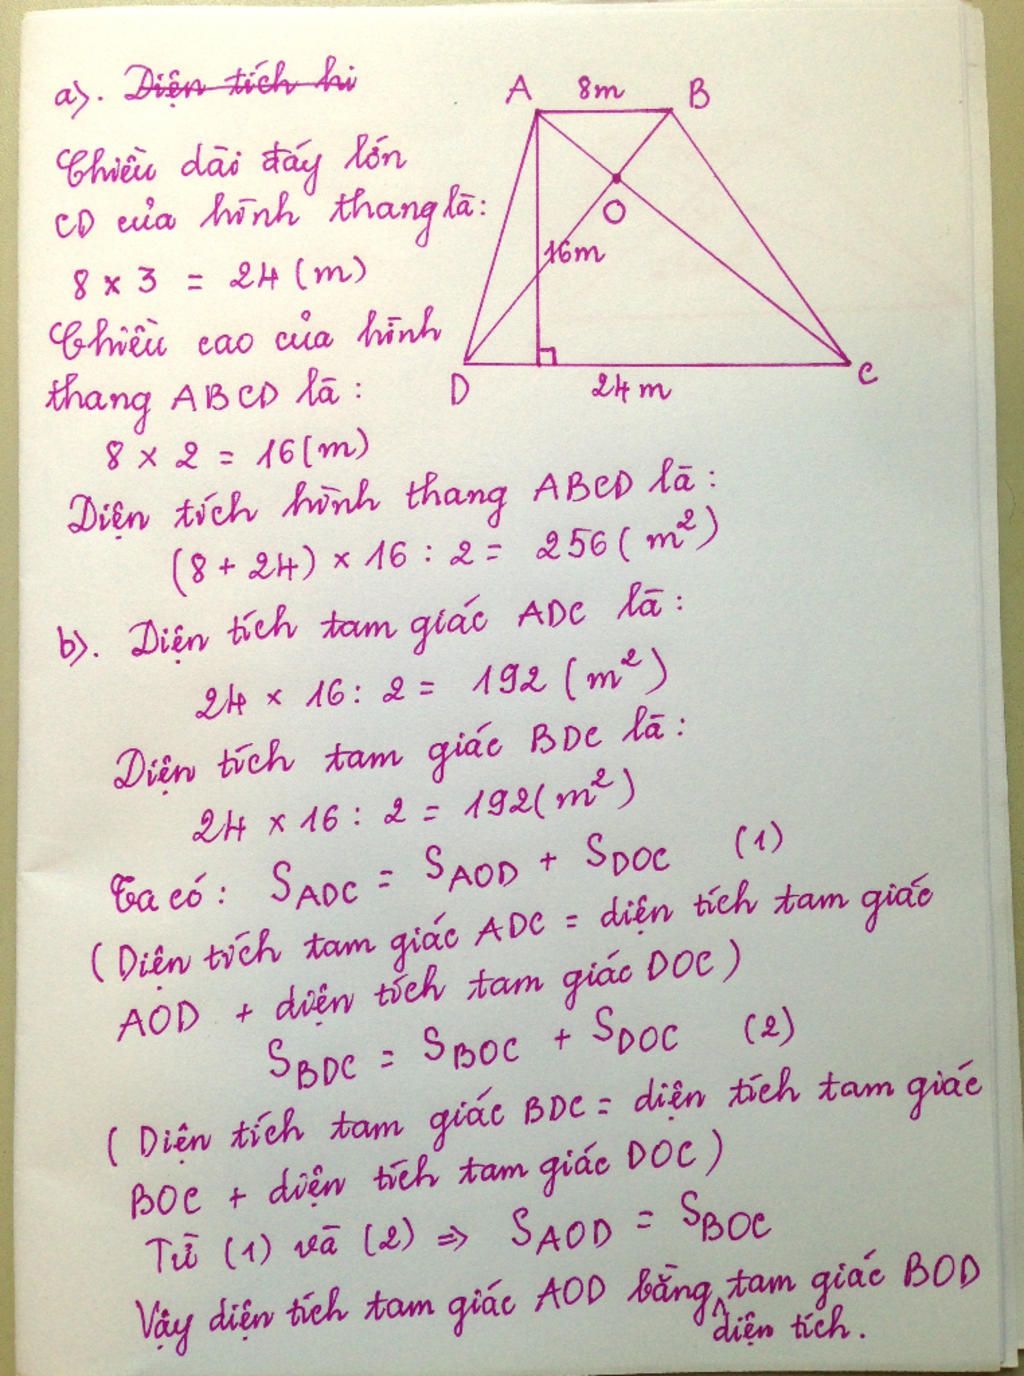 a). Diện tích hi
A 8m B
Chiều dài đáy lớn
CD của hình thang là:
O
8 x 3 = 24 (m)
16m
Chiều cao của hình
thang ABCD là:
D 24 m C
8 x 2 = 16 (m)
Diện tích hình thang ABCD là:
(8 + 24) x 16 : 2 = 256 (m²)
b). Diện tích tam giác ADC là:
24 x 16 : 2 = 192 (m²)
Diện tích tam giác BDC là:
24 x 16 : 2 = 192 (m²)
Ta có: S_ADC = S_AOD + S_DOC (1)
(Diện tích tam giác ADC = diện tích tam giác
AOD + diện tích tam giác DOC)
S_BDC = S_BOC + S_DOC (2)
(Diện tích tam giác BDC = diện tích tam giác
BOC + diện tích tam giác DOC)
Từ (1) và (2) => S_AOD = S_BOC
Vậy diện tích tam giác AOD bằng tam giác BOD
diện tích.